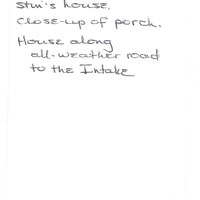 Stui's house.
Close-up of porch.
House along
all-weather road
to the Intake